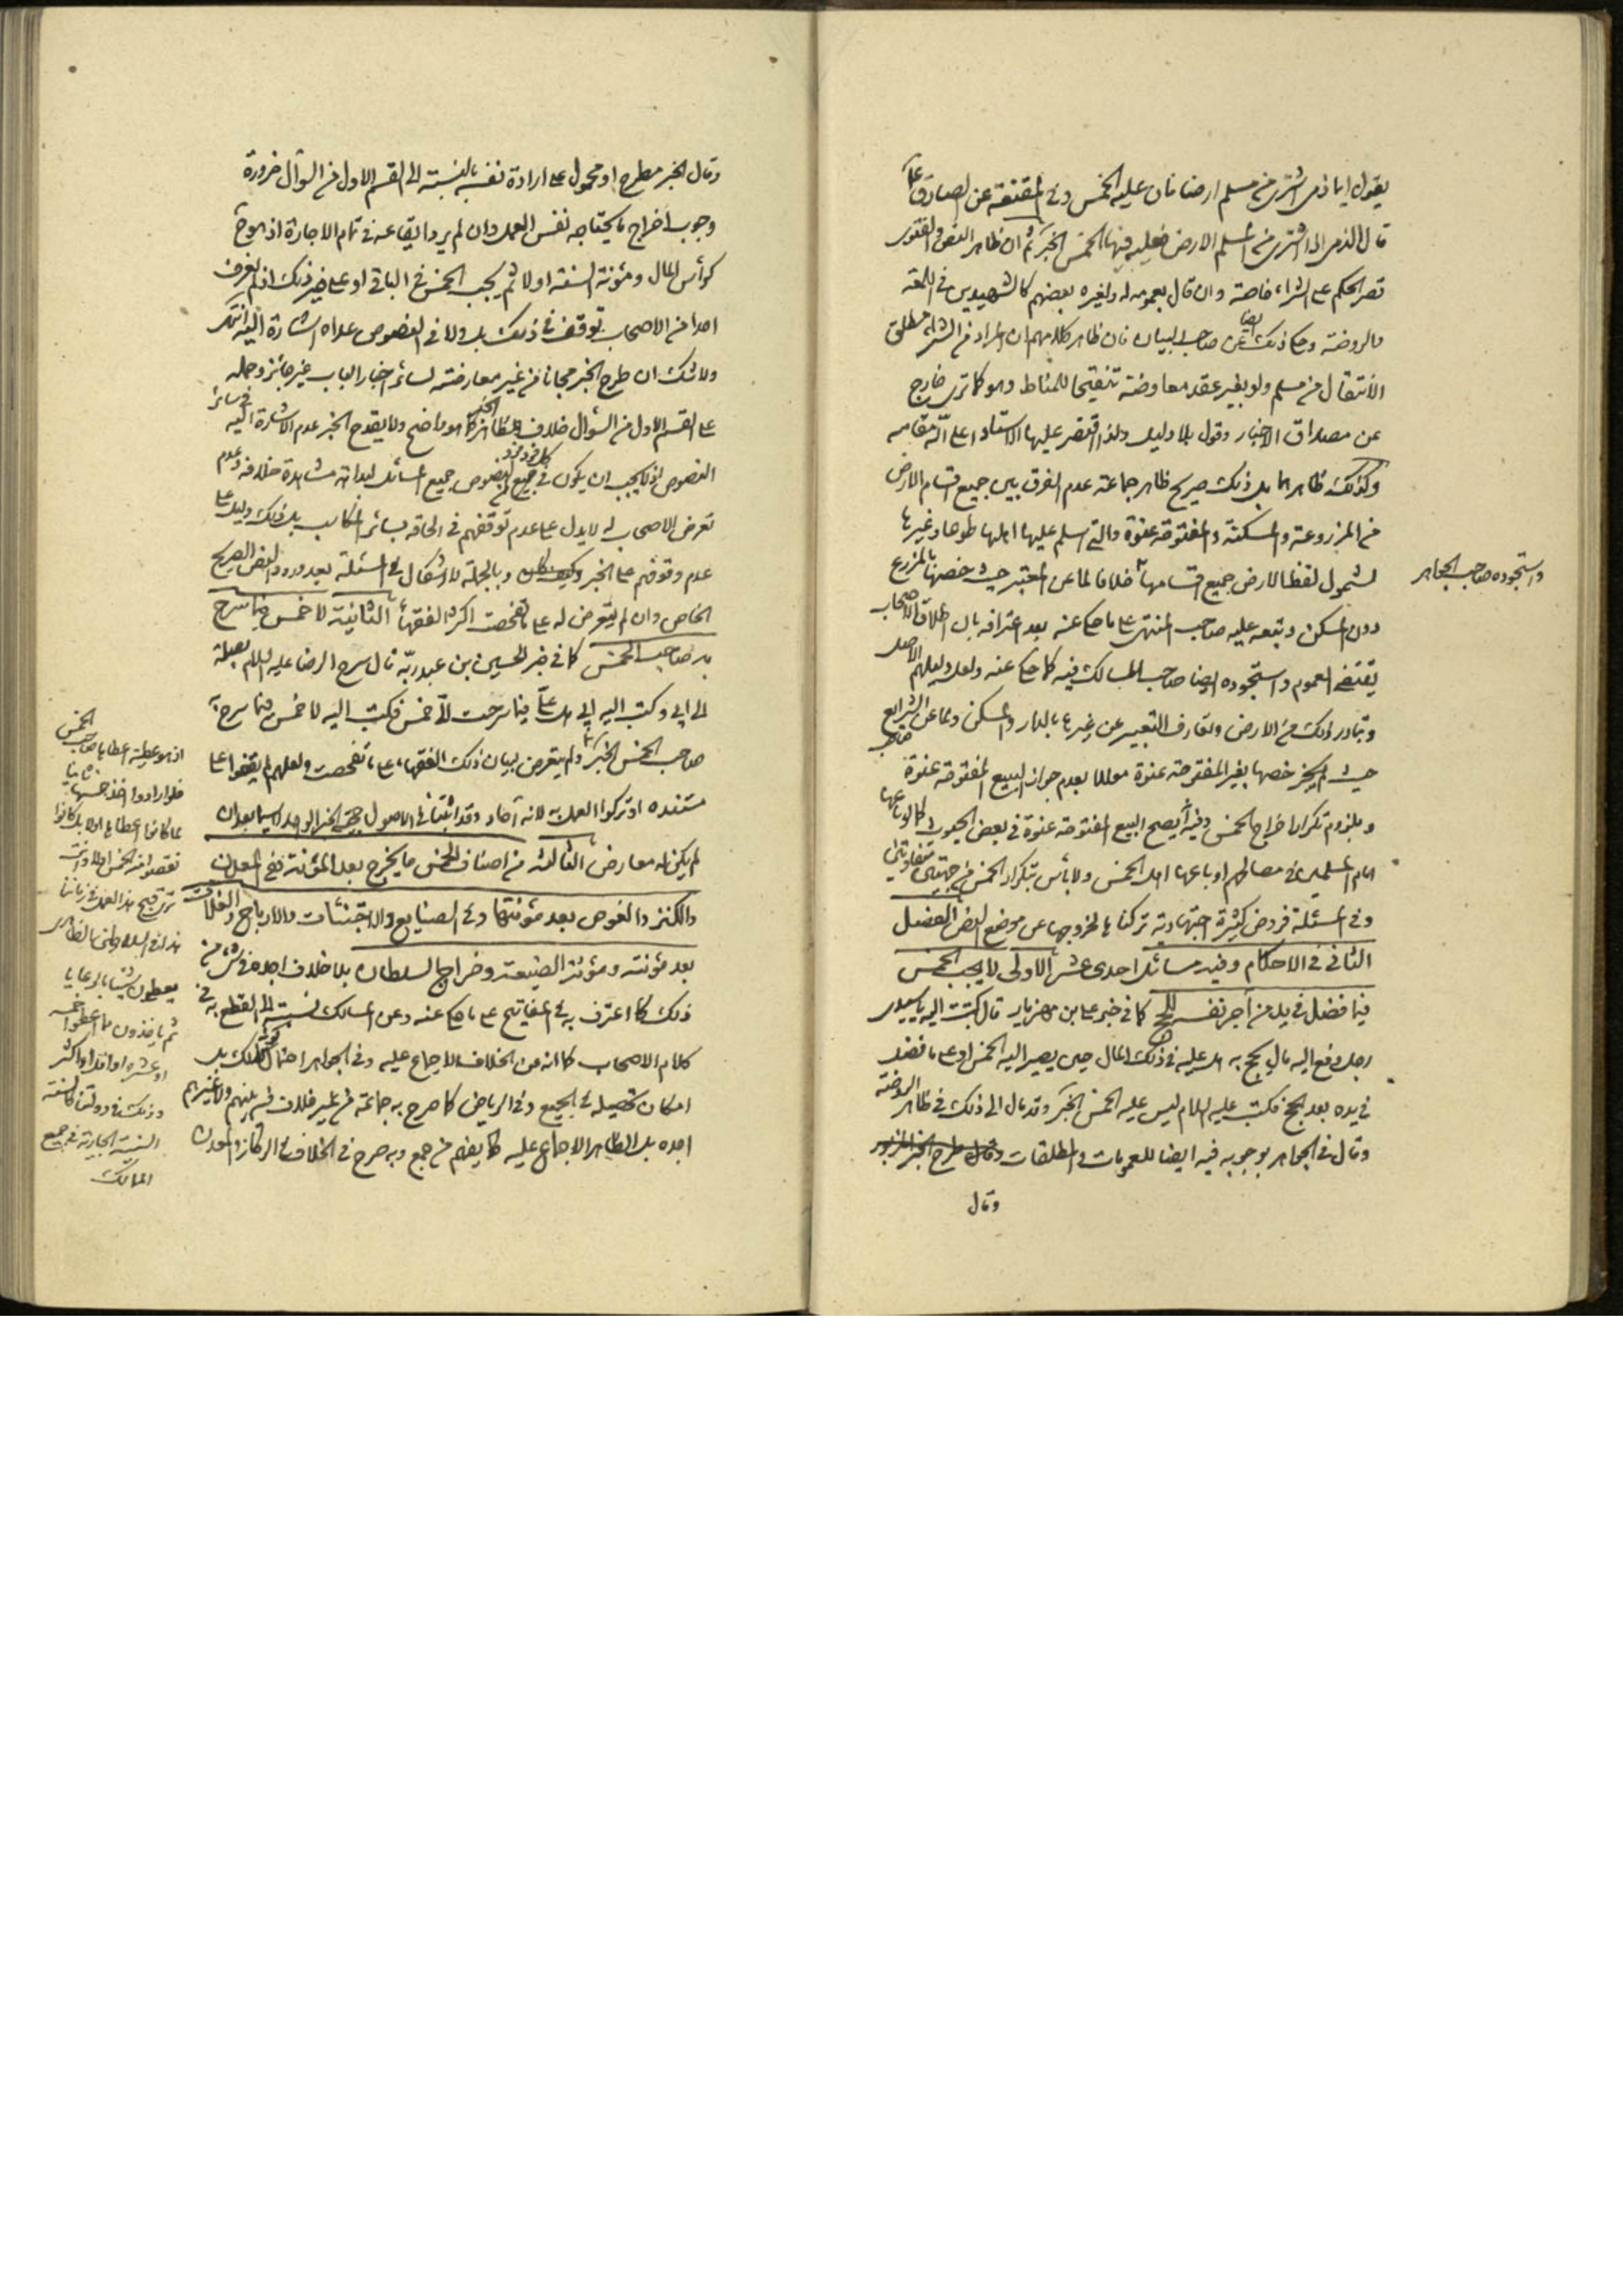 يقول ايما ذمي اشترى من مسلم ارضا فان عليه الخمس وفي المقنعة عن الصادق ع
قال الذمي اذا اشترى من المسلم الارض فعليه فيها الخمس الخبر ثم ان ظاهر النص والفتوى
قصر الحكم على الشراء خاصة وان قال بعمومه له ولغيره بعضهم كالشهيدين في اللمعة
والروضة وحكي ذلك ايضا عن صاحب البيان فان ظاهر كلامهم ان المراد من الشراء مطلق
الانتقال من مسلم ولو بغير عقد معاوضة تنقيحا للمناط وهو كما ترى خارج
عن مصداق الاخبار وقول بلا دليل ولذا اقتصر عليها الاستاد اعلى الله مقامه
وكذلك ظاهرها بل ذلك صريح ظاهر جماعة عدم الفرق بين جميع اقسام الارض
من المزروعة والمسكنة والمفتوحة عنوة والتي اسلم عليها اهلها طوعا وغيرها
لشمول لفظ الارض جميع اقسامها خلافا لما عن المعتبر حيث خصها بالمزرع
واستجوده صاحب الجواهر
دون المسكن وتبعه عليه صاحب المنتهى على ما حكي عنه بعد اعترافه بان اطلاق الاصحاب
يقتضي العموم واستجوده ايضا صاحب المدارك فيه كما حكي عنه ولعل دليلهم الاصل
وتبادر ذلك من الارض وتعارف التعبير عن غيرها بالدار والمسكن ولما عن الشرايع
حيث خصها بغير المفتوحة عنوة معللا بعدم جواز البيع المفتوحة عنوة
وبلزوم تكرار اخراج الخمس وفيه أيصح البيع المفتوحة عنوة في بعض الصور كما لو باعها
امام المسلمين في مصالحهم او باعها اهل الخمس ولا بأس بتكرار الخمس من جهتين متفاوتتين
وفي المسئلة فروض كثيرة اجتهادية تركناها لخروجها عن موضع النص الفصل
الثاني في الاحكام وفيه مسائل احدى عشر الاولى لا يجب الخمس
فيما فضل في يد من آجر نفسه للحج كما في خبر علي بن مهزيار قال كتبت اليه يا سيدي
رجل دفع اليه مال يحج به هل عليه في ذلك المال حين يصير اليه الخمس او على ما فضل
في يده بعد الحج فكتب عليه السلام ليس عليه الخمس الخبر وقد مال الى ذلك في ظاهر الروضة
وقال في الجواهر بوجوبه فيه ايضا للعمومات والمطلقات
وقال
وقال الخبر مطرح او محمول على ارادة نفسه بالنسبة الى القسم الاول من السؤال ضرورة
وجوب اخراج ما يحتاجه نفس العمل وان لم يرد ايقاعه في تمام الاجارة اذ هو ح
كرأس المال ومئونة السنة اولا ثم يجب الخمس في الباقي او على غير ذلك اذ لم نعرف
احدا من الاصحاب توقف في ذلك بل ولا في النصوص عداه اشارة اليه انتهى
ولا شك ان طرح الخبر مجانا من غير معارضته لسائر اخبار الباب غير جائز وحمله
على القسم الاول من السؤال خلاف ظاهر الخبر كما هو واضح ولا يقدح الخبر عدم الاشارة اليه في سائر
النصوص اذ لا يجب ان يكون في كل فرد فرد النصوص جميع المسائل لبداهة مشاهدة خلافه وعدم
تعرض الاصحاب له لا يدل على عدم توقفهم في الحاقه بسائر المكاسب بل ذلك دليل على
عدم وقوفهم على الخبر وبالجملة لا اشكال في المسئلة بعد ورود النص الصريح
الخاص وان لم يتعرض له على ما تفحصت اكثر الفقهاء الثانية لا خمس فيما سرح
به صاحب الخمس كما في خبر الحسين بن عبد ربه قال سرح الرضا عليه السلام بصلة
الى ابي وكتب اليه ابي هل عليّ فيما سرحت اليّ خمس فكتب اليه لا خمس فيما سرح به
صاحب الخمس الخبر ولم يتعرض لبيان ذلك الفقهاء على ما تفحصت ولعلهم لم يقفوا على
مستنده او تركوا العمل به لانه آحاد وقد اثبتنا في الاصول حجية الخبر الواحد لا سيما بعد ان
لم يكن له معارض الثالثة من اصناف الخمس ما يخرج بعد المؤنة ففي المعدن
والكنز والغوص بعد مئونتها وفي الصنايع والاجتنئات والارباح والغلات
بعد مؤنته ومؤنة الضيعة وخراج السلطان بلا خلاف اجده في شيء من
ذلك كما اعترف به في المفاتيح على ما حكي عنه وعن المسالك نسبته الى القطع به في
كلام الاصحاب كما انه من الخلاف الاجماع عليه وفي الجواهر احتمال كونه كذلك بل
امكان تحصيله في الجميع وفي الرياض كما صرح به جماعة من غير خلاف فيه بينهم ولا غيرهم
اجده بل الظاهر الاجماع عليه كما يفهم من جمع وبه صرح في الخلاف في الركاز والمعدن
اذ هو عطية اعطاها صاحب الخمس
فلو ارادوا اخذ خمسها ثانيا
لما كانوا اعطاها اولا بل كانوا
نقصوا منه الخمس اولا وانت
ترى قبح هذا العمل في زماننا
يعطون شيئا بالرعايا
ثم ياخذون مما اعطوا خمسه
او عشره او اقل او اكثر
وذلك في دولتنا كالسنة
السنية الجارية في جميع
الممالك